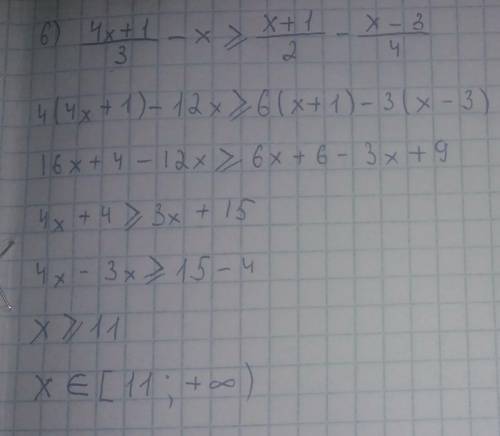 б) (4x+1)/3 - x ⩾ (x+1)/2 - (x-3)/4
4(4x+1)-12x⩾6(x+1)-3(x-3)
16x+4-12x⩾6x+6-3x+9
4x+4⩾3x+15
4x-3x⩾15-4
x⩾11
x∈[11;+∞)